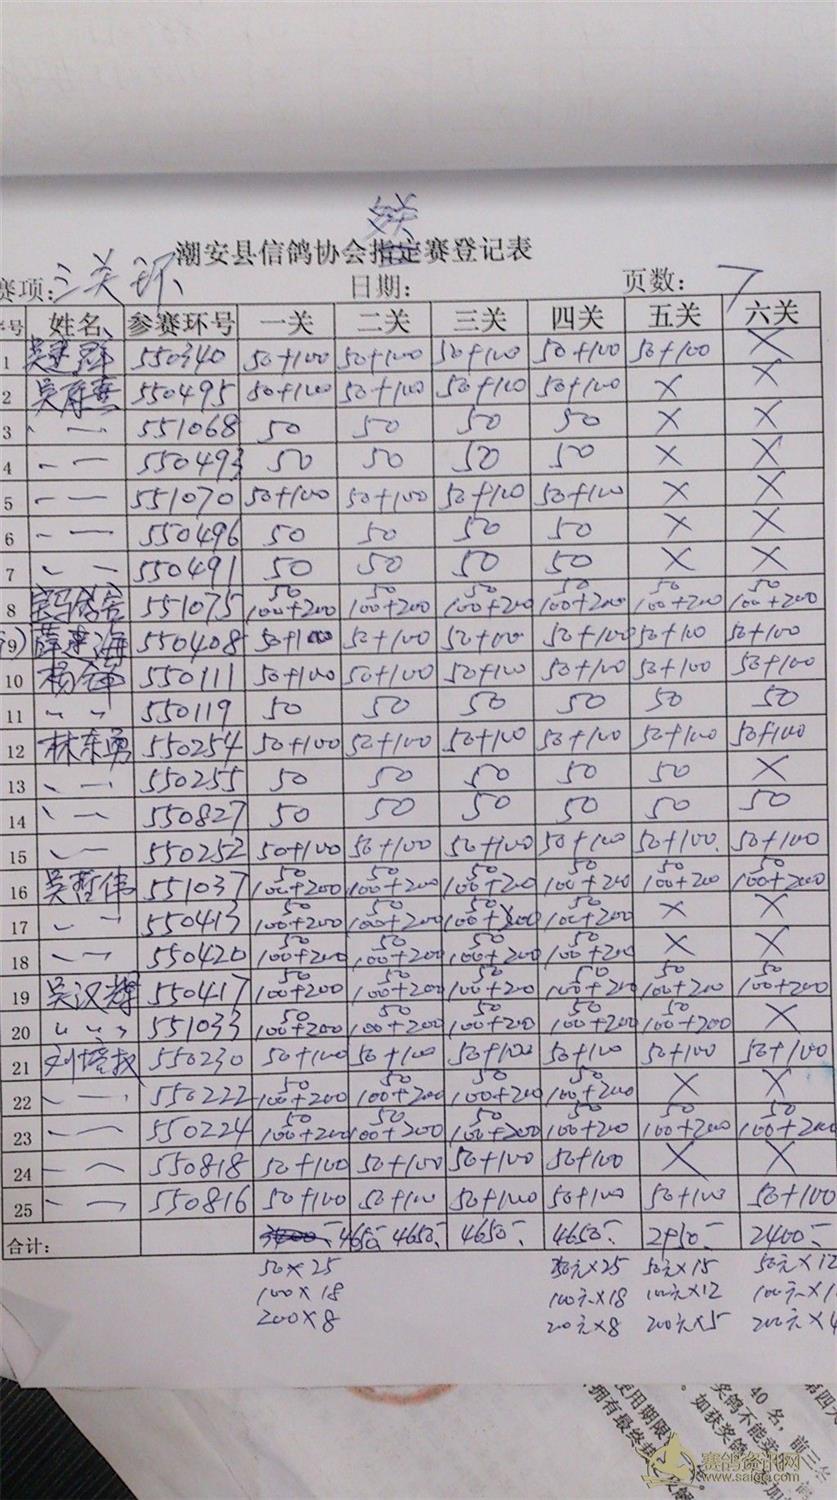 潮安县信鸽协会指定赛登记表
赛项: 三关环 日期: 页数: 7
序号 姓名 参赛环号 一关 二关 三关 四关 五关 六关
1 550340 50+100 50+100 50+100 50+100 50+100 ×
2 550495 50+100 50+100 50+100 50+100 × ×
3 551068 50 50 50 50 × ×
4 550493 50 50 50 50 × ×
5 551070 50+100 50+100 50+100 50+100 × ×
6 550496 50 50 50 50 × ×
7 550491 50 50 50 50 × ×
8 551075 50 100+200 50 100+200 50 100+200 50 100+200 50 100+200 50 100+200
9 薛建海 550408 50+100 50+100 50+100 50+100 50+100 50+100
10 杨锋 550111 50+100 50+100 50+100 50+100 50+100 50+100
11 550119 50 50 50 50 50 50
12 林东勇 550254 50+100 50+100 50+100 50+100 50+100 50+100
13 550255 50 50 50 50 50 ×
14 550827 50 50 50 50 50 50
15 550252 50+100 50+100 50+100 50+100 50+100 50+100
16 吴哲伟 551037 50 100+200 50 100+200 50 100+200 50 100+200 50 100+200 50 100+200
17 550413 50 100+200 50 100+200 50 100+200 50 100+200 × ×
18 550420 50 100+200 50 100+200 50 100+200 50 100+200 × ×
19 吴汉辉 550417 50 100+200 50 100+200 50 100+200 50 100+200 50 100+200 50 100+200
20 551033 50 100+200 50 100+200 50 100+200 50 100+200 50 100+200 ×
21 550230 50+100 50+100 50+100 50+100 50+100 50+100
22 550222 50 100+200 50 100+200 50 100+200 50 100+200 × ×
23 550224 50 100+200 50 100+200 50 100+200 50 100+200 50 100+200 50 100+200
24 550818 50+100 50+100 50+100 50+100 × ×
25 550816 50+100 50+100 50+100 50+100 50+100 50+100
合计: 4650- 4650- 4650- 4650- 2950- 2400-
50×25 50元×25 50元×15 50元×12
100×18 100元×18 100元×12
200×8 200元×8 200元×5 200元×4
第四次
40名,前三
奖鸽不能卖
如获奖鸽
使用期限
拥有最终
赛鸽资讯网
www.saige.com